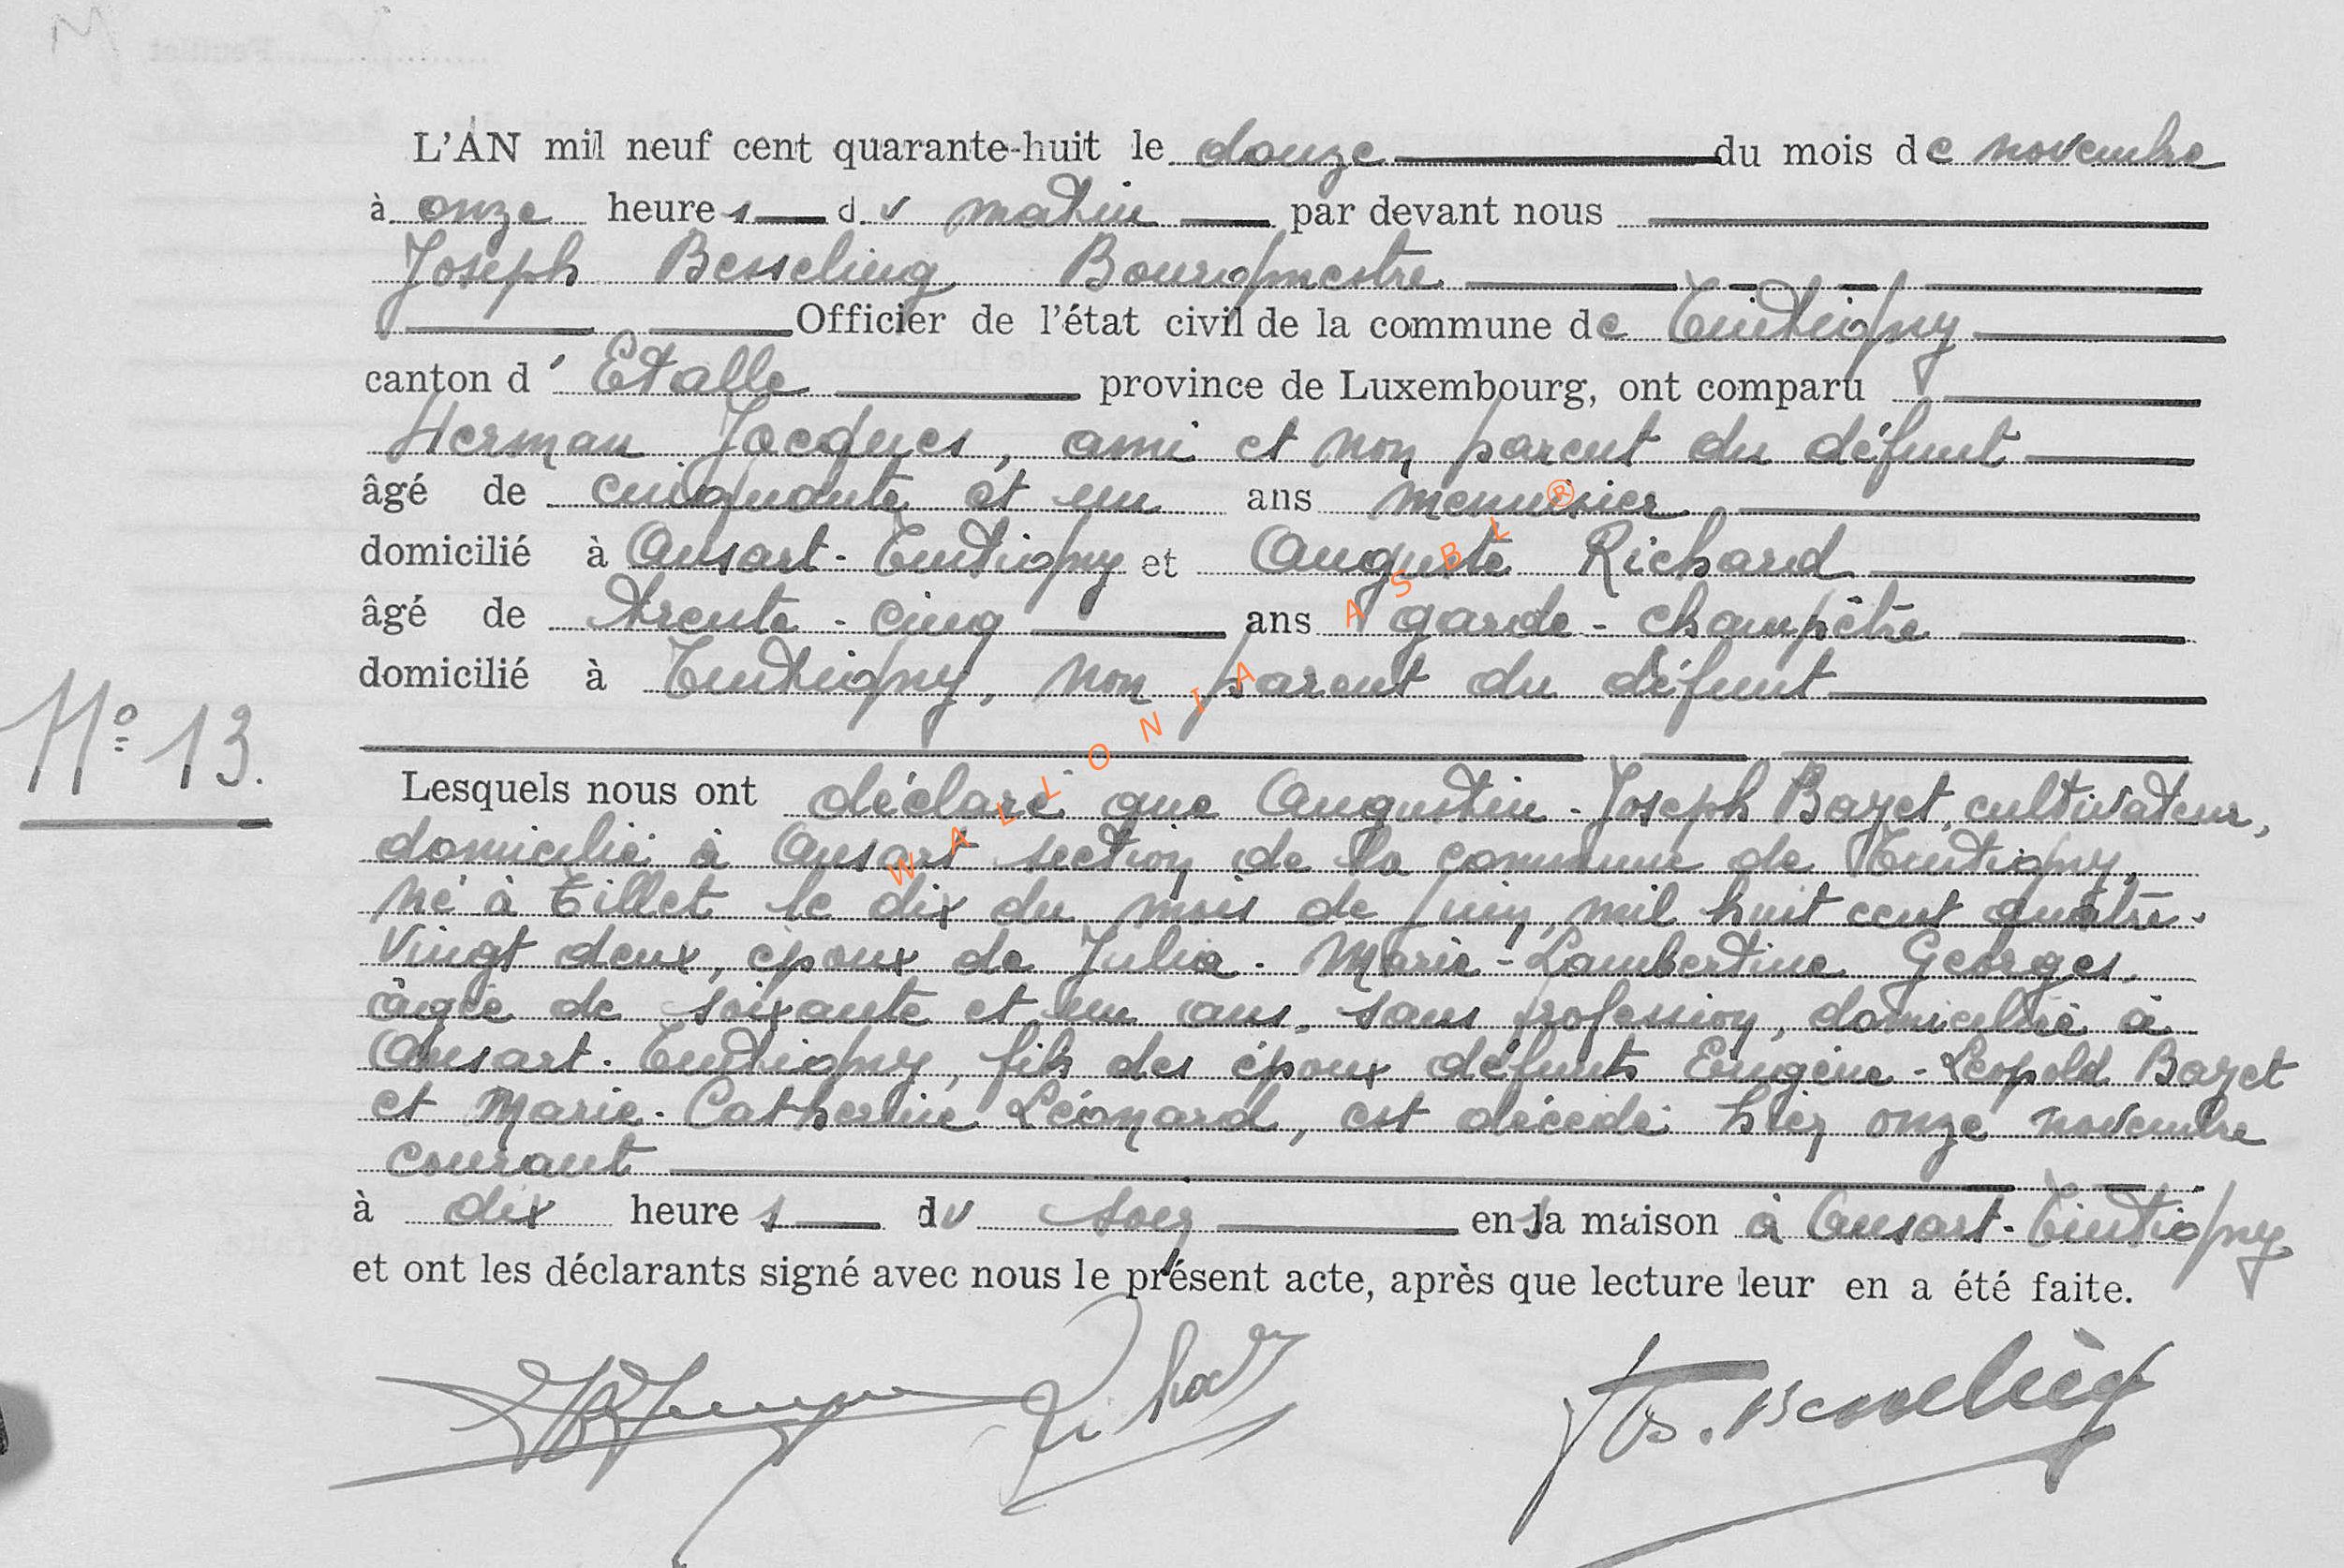 L'AN mil neuf cent quarante-huit le douze du mois de novembre
à onze heures du matin par devant nous
Joseph Besseling Bourgmestre
Officier de l'état civil de la commune de Tintigny
canton d'Etalle province de Luxembourg, ont comparu
Herman Jacques, ami et non parent du défunt
âgé de cinquante et un ans menuisier
domicilié à Ansart-Tintigny et Auguste Richard
âgé de trente-cinq ans garde-champêtre
domicilié à Tintigny, non parent du défunt
N° 13.
Lesquels nous ont déclaré que Augustin-Joseph Bazet, cultivateur,
domicilié à Ansart section de la commune de Tintigny,
né à Tillet le dix du mois de juin mil huit cent quatre-
vingt deux, époux de Julia-Marie-Lambertine Georges,
âgée de soixante et un ans, sans profession, domiciliée à
Ansart-Tintigny, fils des époux défunts Eugène-Léopold Bazet
et Marie-Catherine Léonard, est décédé hier onze novembre
courant
à dix heures du soir en sa maison à Ansart-Tintigny
et ont les déclarants signé avec nous le présent acte, après que lecture leur en a été faite.
Richard
Jos. Besseling
WALLONIA ASBL ®